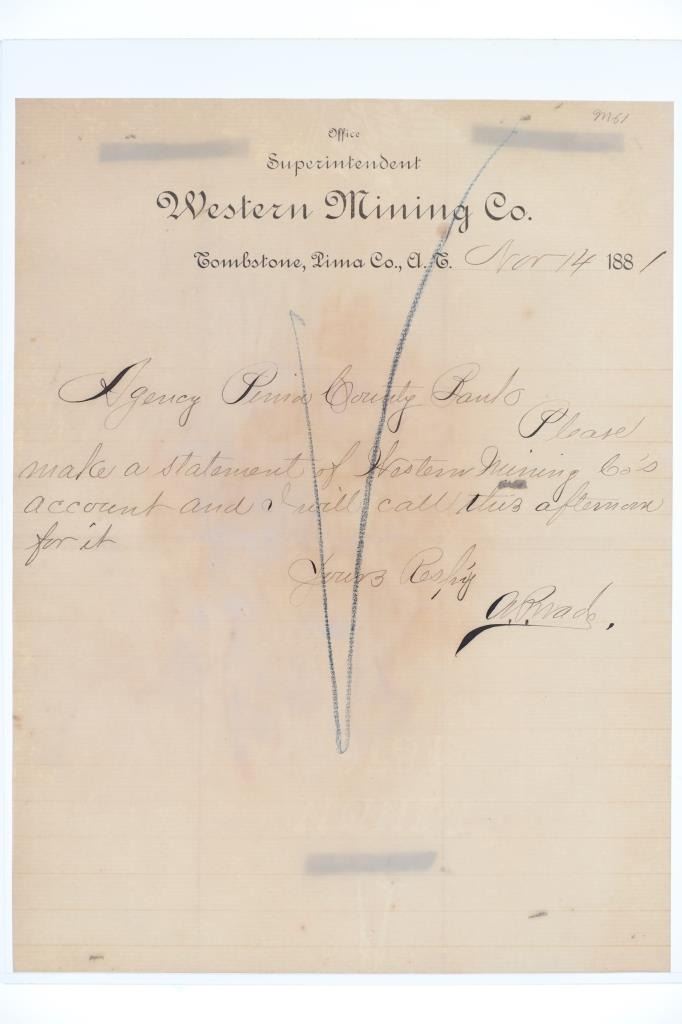 M-61
Office
Superintendent
Western Mining Co.
Tombstone, Pima Co., A. T. Nov 14 1881
Agency Pima County Bank
Please
make a statement of Western Mining Co's
account and I will call this afternoon
for it
Yours Resp'y